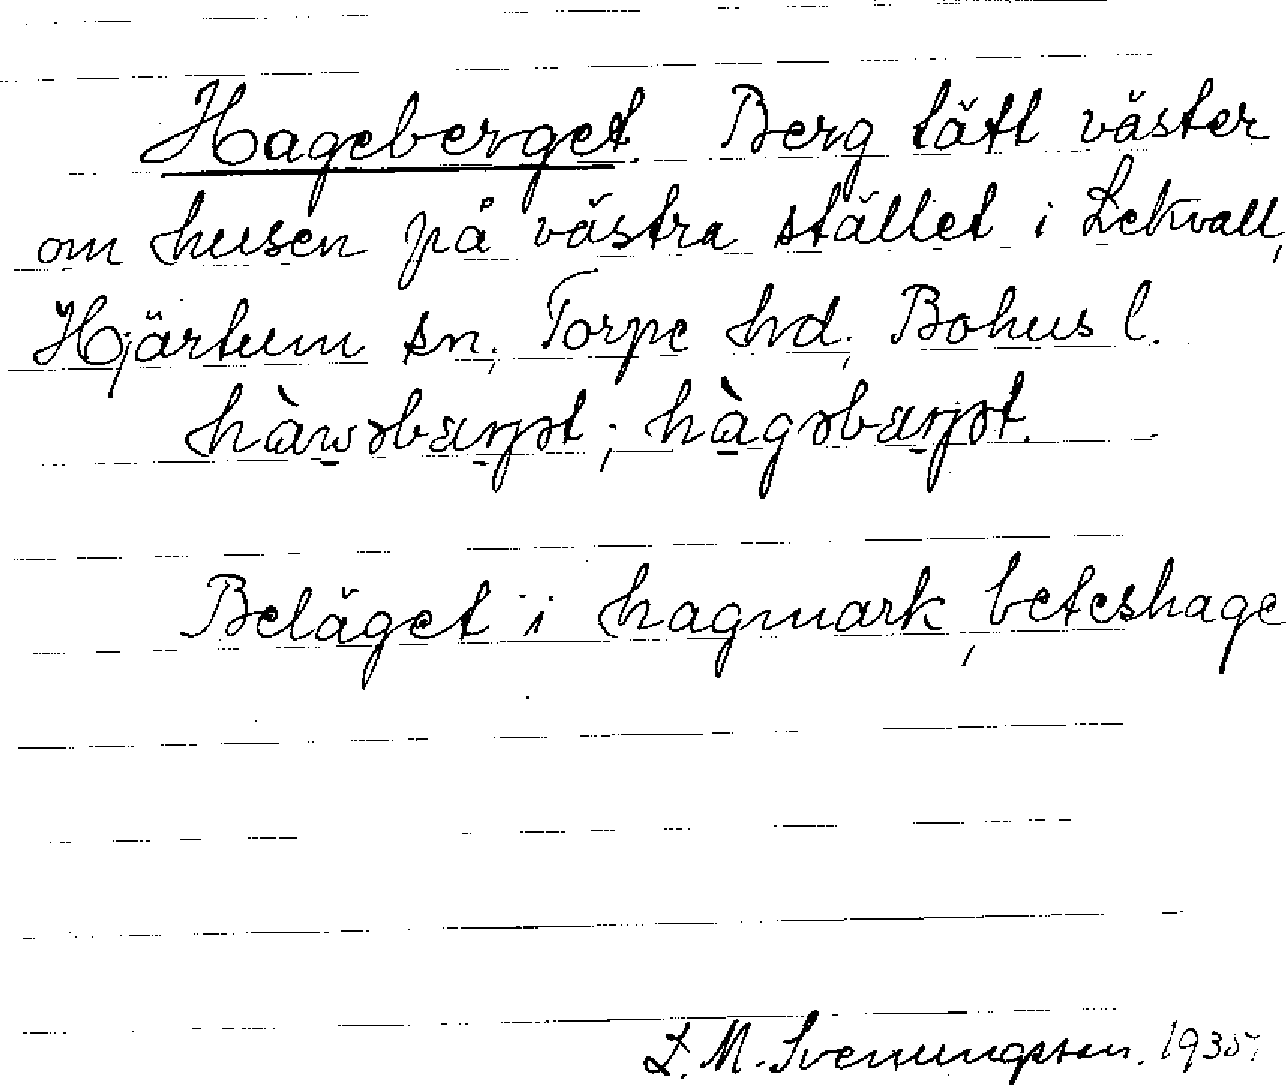 Hageberget. Berg tätt väster
om husen på västra stället i Lekvall,
Hjärtum sn, Torpe hd, Bohus l.
hàwəbærjət ; hàgəbærjət.
Beläget i hagmark, beteshage
L. M. Svenungsson. 1935.